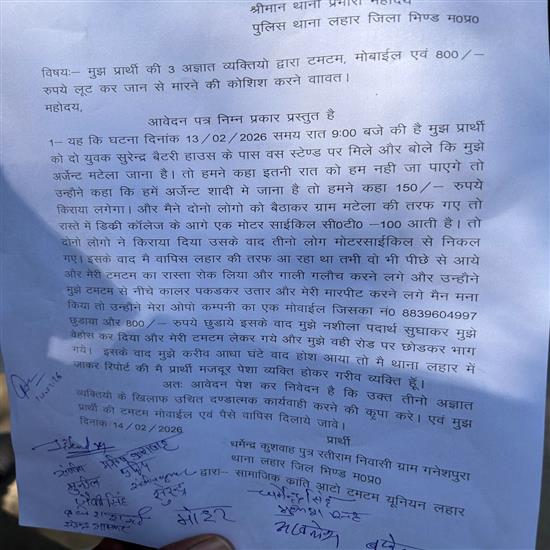 श्रीमान थाना प्रभारी महोदय
पुलिस थाना लहार जिला भिण्ड म0प्र0
विषयः– मुझ प्रार्थी की 3 अज्ञात व्यक्तियो द्वारा टमटम, मोबाईल एवं 800/–
रुपये लूट कर जान से मारने की कोशिश करने वाावत।
महोदय,
आवेदन पत्र निम्न प्रकार प्रस्तुत है
1– यह कि घटना दिनांक 13/02/2026 समय रात 9:00 बजे की है मुझ प्रार्थी
को दो युवक सुरेन्द्र बैटरी हाउस के पास वस स्टेण्ड पर मिले और बोले कि मुझे
अर्जेन्ट मटेला जाना है। तो हमने कहा इतनी रात को हम नही जा पाएगे तो
उन्हौने कहा कि हमें अर्जेन्ट शादी मे जाना है तो हमने कहा 150/– रुपये
किराया लगेगा। और मैने दोनो लोगो को बैठाकर ग्राम मटेला की तरफ गए तो
रास्ते में डिक्री कॉलेज के आगे एक मोटर साईकिल सी0टी0 –100 आती है। तो
दोनो लोगो ने किराया दिया उसके वाद तीनो लोग मोटरसाईकिल से निकल
गए। इसके वाद मै वापिस लहार की तरफ आ रहा था तभी वो भी पीछे से आये
और मेरी टमटम का रास्ता रोक लिया और गाली गलौच करने लगे और उन्हौने
मुझे टमटम से नीचे कालर पकडकर उतार और मेरी मारपीट करने लगे मैन मना
किया तो उन्होने मेरा ओपो कम्पनी का एक मोवाईल जिसका नं0 8839604997
छुडाया और 800/– रुपये छुडाये इसके वाद मुझे नशीला पदार्थ सुघाकर मुझे
वेहोस कर दिया और मेरी टमटम लेकर गये और मुझे वही रोड पर छोडकर भाग
गये। इसके वाद मुझे करीव आधा घंटे वाद होश आया तो मै थाना लहार में
जाकर रिपोर्ट की मै प्रार्थी मजदूर पेशा व्यक्ति होकर गरीव व्यक्ति हूँ।
अतः आवेदन पेश कर निवेदन है कि उक्त तीनो अज्ञात
व्यक्तियो के खिलाफ उचित दण्डात्मक कार्यवाही करने की कृपा करे। एवं मुझ
प्रार्थी की टमटम मोवाईल एवं पैसे वापिस दिलाये जावे।
दिनांक 14/02/2026
प्रार्थी
धर्मेन्द्र कुशवाह पुत्र रतीराम निवासी ग्राम गनेशपुरा
थाना लहार जिल भिण्ड म0प्र0
द्वारा– सामाजिक क्रांति आटो टमटम यूनियन लहार
सुनील
सुरेन्द्र
धर्मेन्द्र सिंह